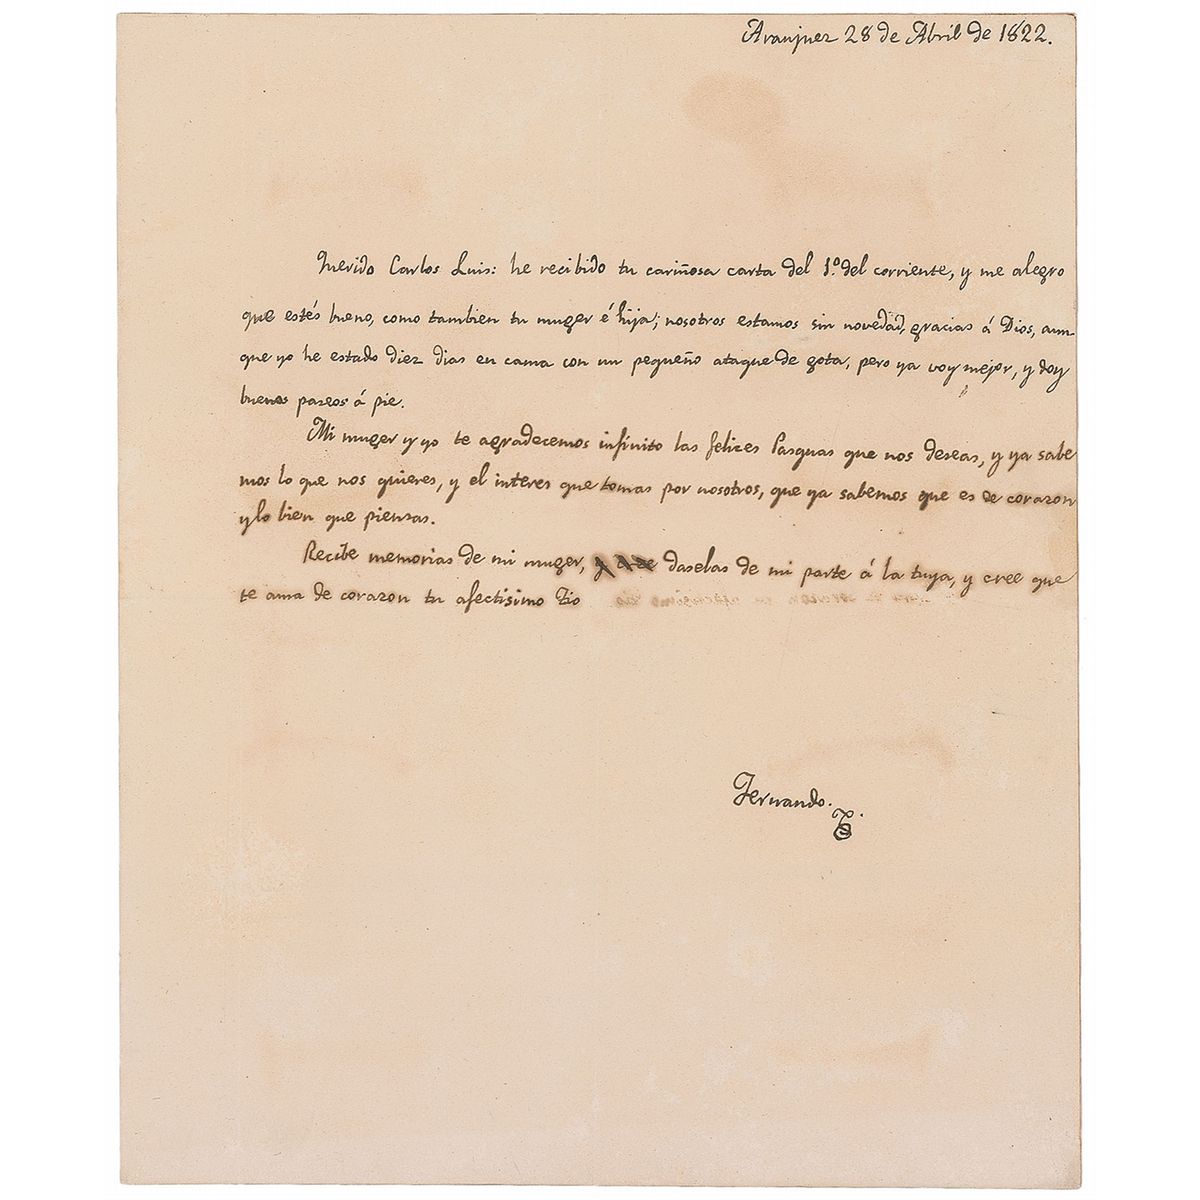 Aranjuez 28 de Abril de 1822.
Querido Carlos Luis: he recibido tu cariñosa carta del 1.º del corriente, y me alegro
que estés bueno, como tambien tu muger é hija; nosotros estamos sin novedad, gracias á Dios, aun-
que yo he estado diez dias en cama con un pequeño ataque de gota, pero ya voy mejor, y doy
buenos paseos á pie.
Mi muger y yo te agradecemos infinito las felices Pasquas que nos deseas, y ya sabe
mos lo que nos quieres, y el interes que tomas por nosotros, que ya sabemos que es de corazon
y lo bien que piensas.
Recibe memorias de mi muger, daselas de mi parte á la tuya, y cree que
te ama de corazon tu afectisimo Tio
Fernando.